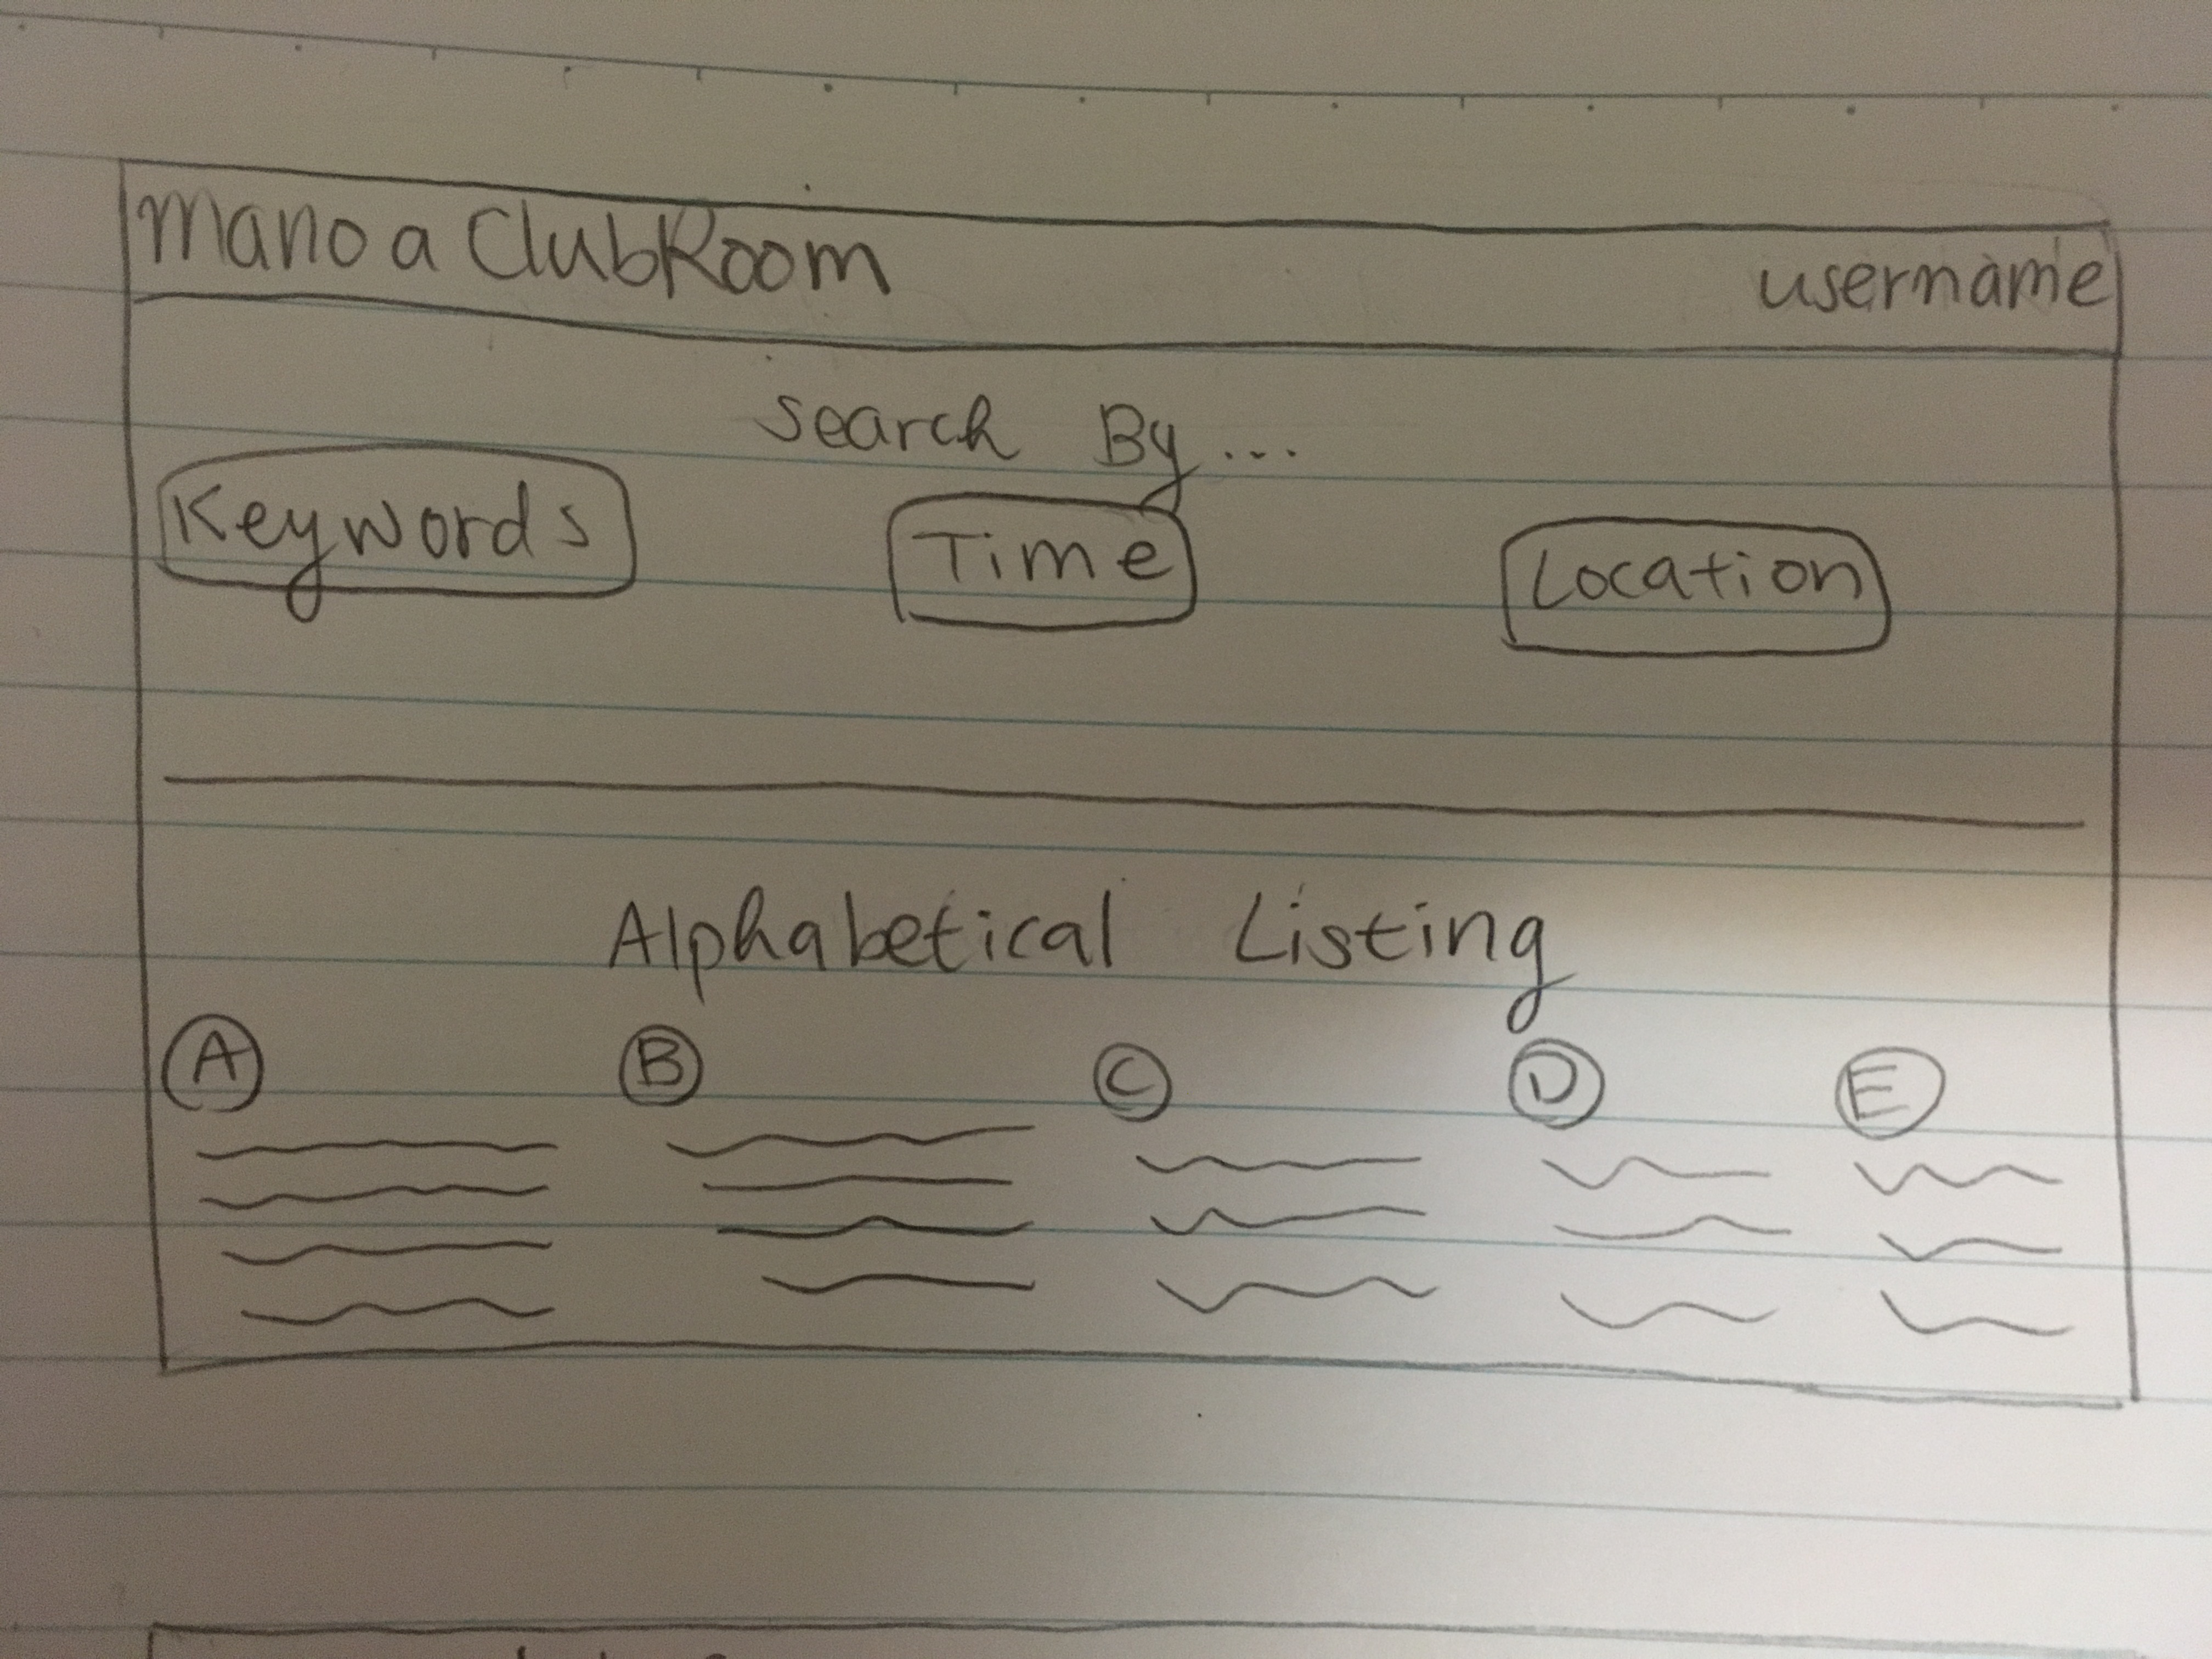 Manoa ClubRoom username
Search By...
Keywords Time Location
Alphabetical Listing
A B C D E